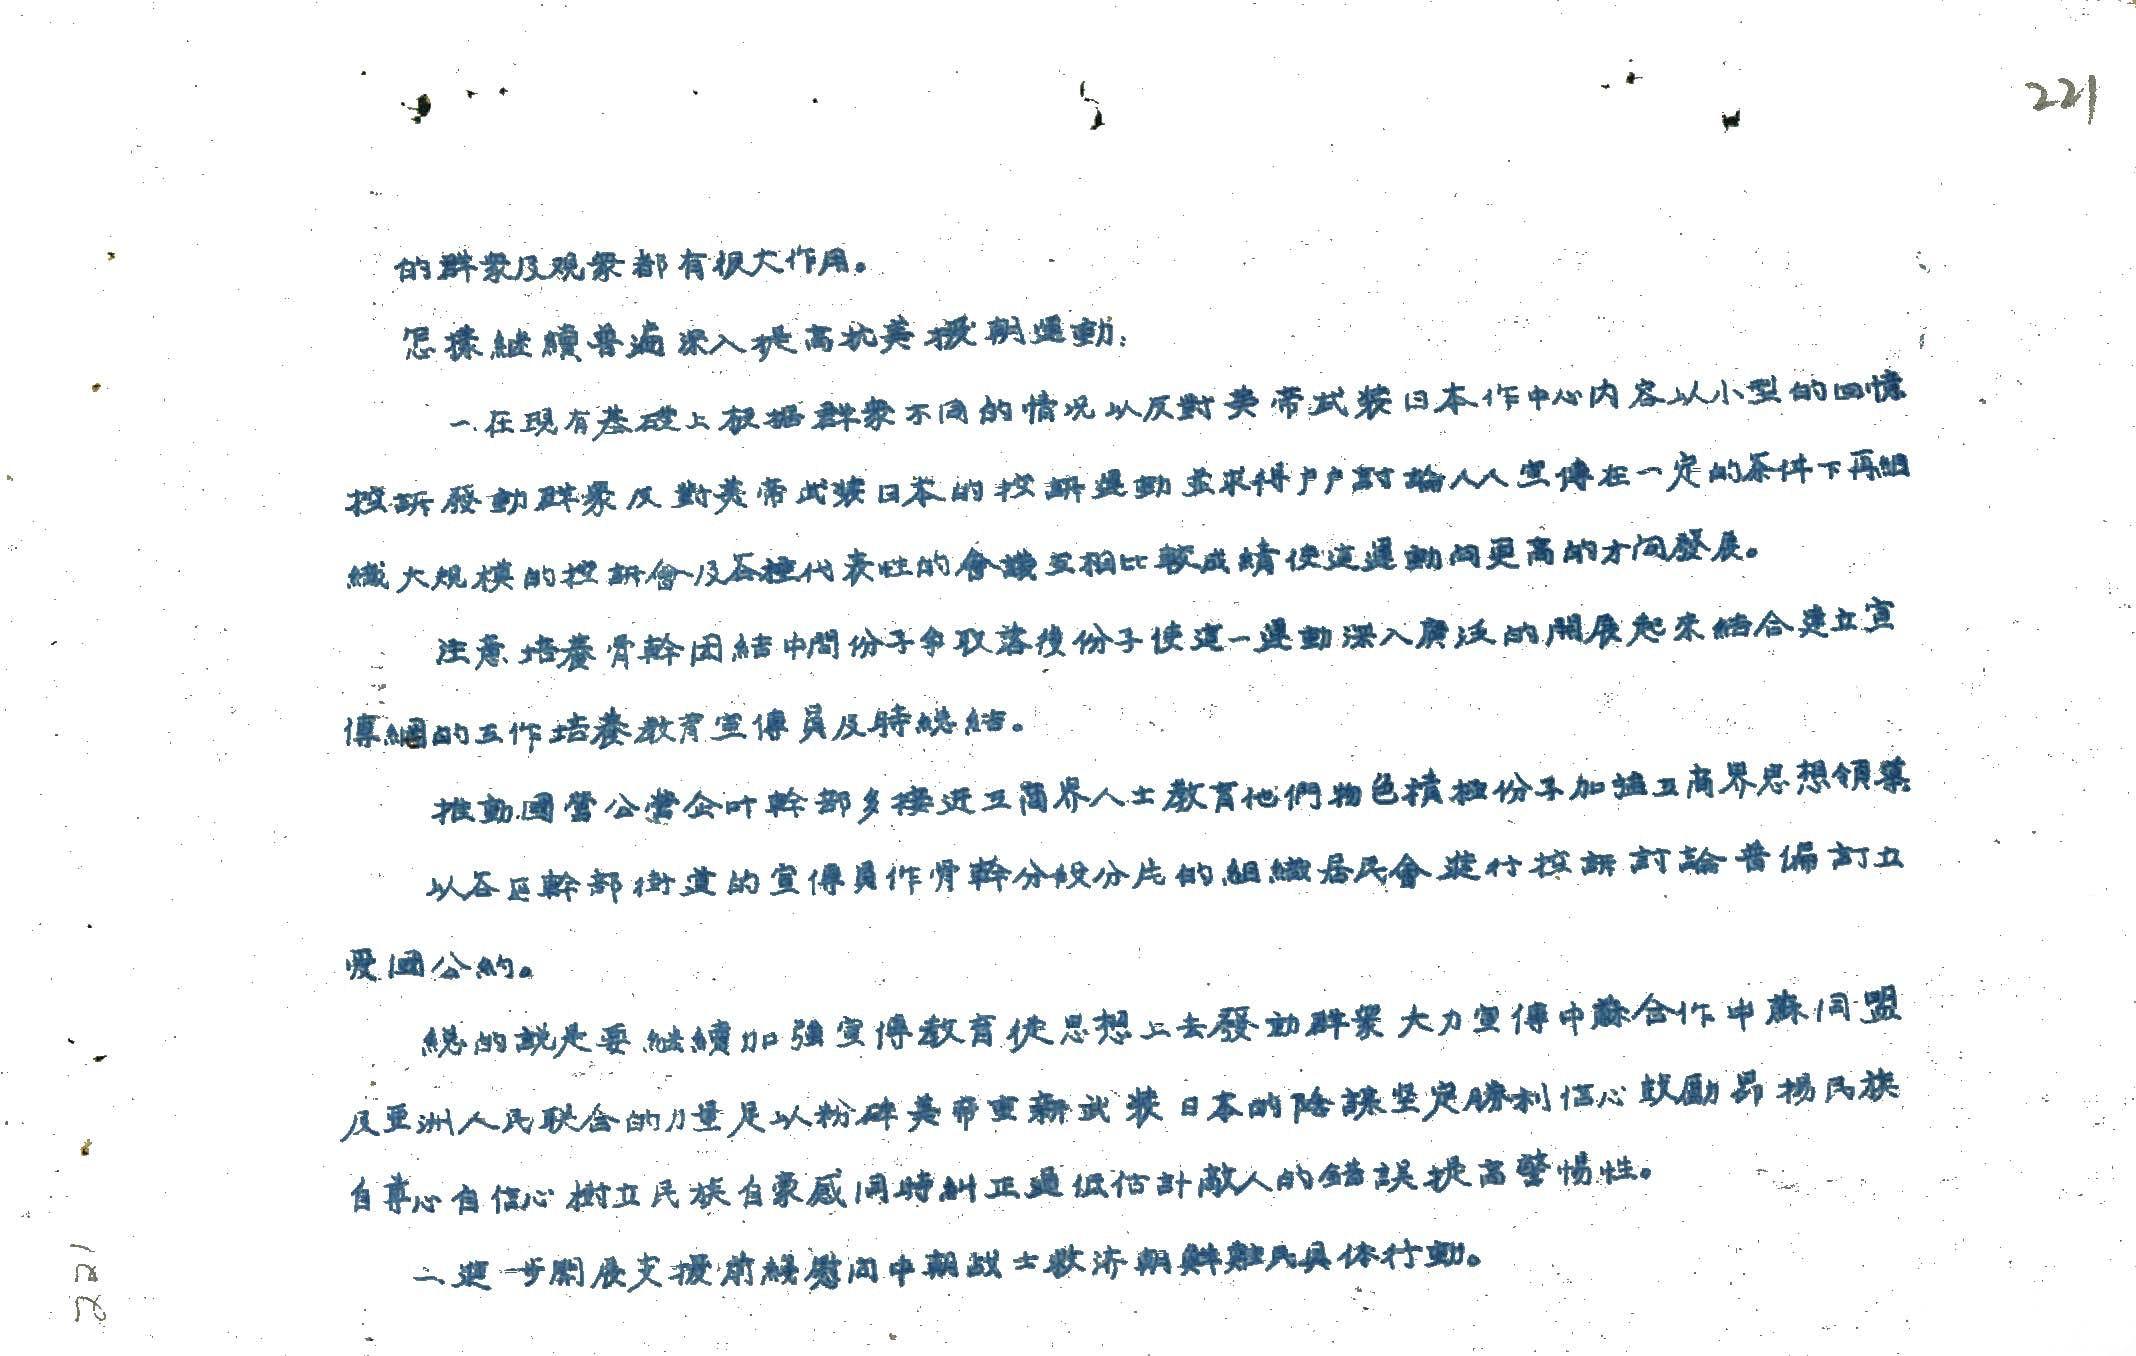 221
的群衆及观衆都有很大作用。
怎樣継續普遍深入提高抗美援朝運動：
一.在現有基礎上根据群衆不同的情况以反對美帝武装日本作中心内容以小型的回憶
控訴發動群衆反對美帝武装日本的控訴運動並求得户户討論人人宣傳在一定的条件下再組
織大規模的控訴會及各種代表性的會議互相比較成績使這運動向更高的方向發展。
注意培養骨幹团結中間份子争取落後份子使這一運動深入廣泛的開展起來結合建立宣
傳網的工作培養教育宣傳員及時総結。
推動國營公營企叶幹部多接近工商界人士教育他們物色積極份子加強工商界思想領導
以各区幹部街道的宣傳員作骨幹分段分片的組織居民會進行控訴討論普偏訂立
爱國公約。
総的説是要继續加強宣傳教育從思想上去發动群衆大力宣傳中蘇合作中蘇同盟
及亚洲人民联合的力量足以粉碎美帝重新武装日本的陰謀坚定勝利信心鼓勵昂揚民族
自尊心自信心樹立民族自豪感同時糾正過低估計敵人的錯誤提高警惕性。
二.進一步開展支援前綫慰问中朝战士救济朝鮮難民具体行動。
221